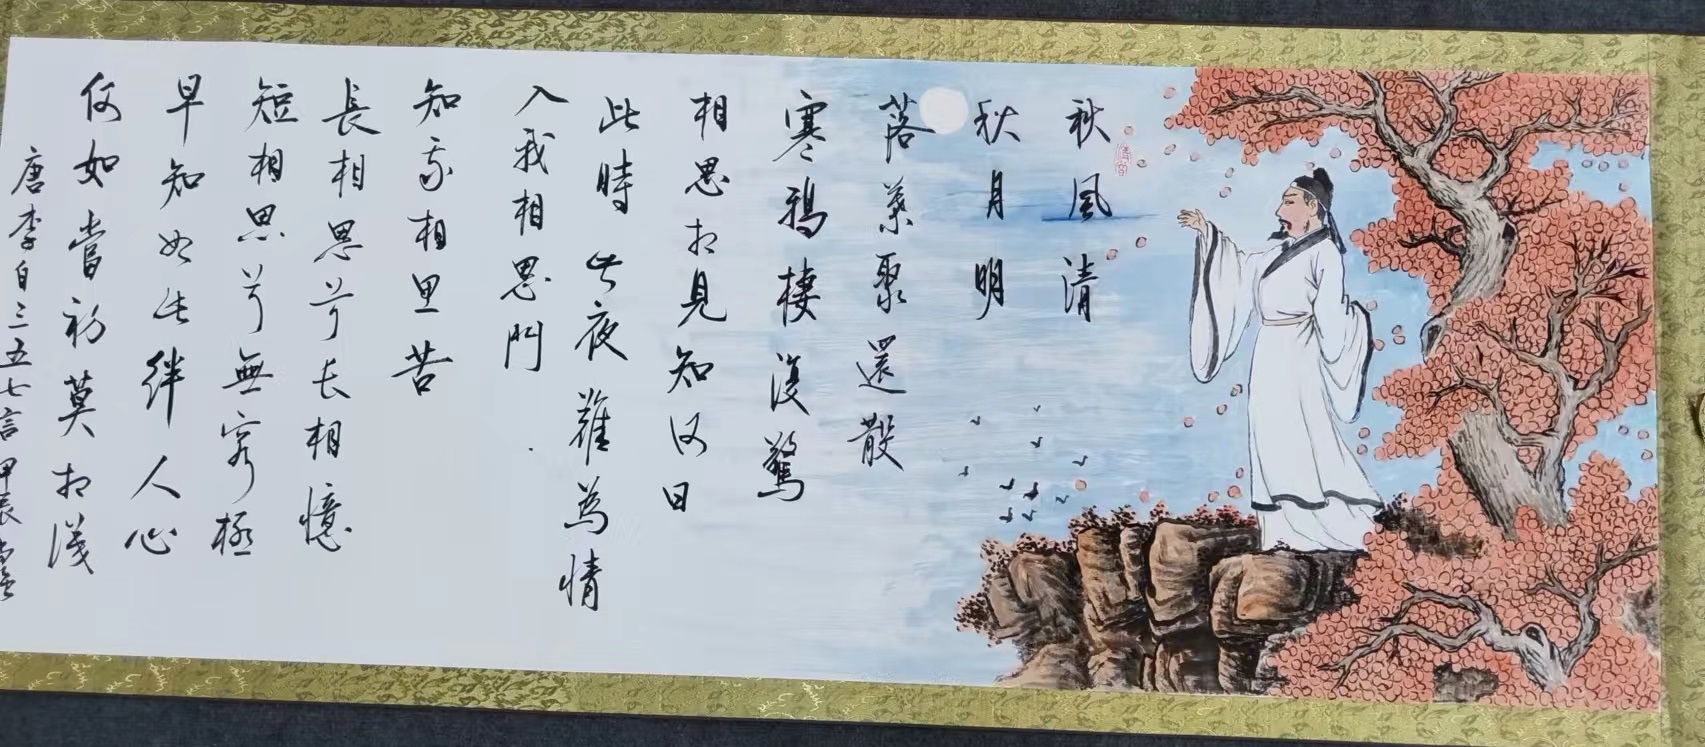 秋風清
秋月明
落葉聚還散
寒鴉棲復驚
相思相見知何日
此時此夜難為情
入我相思門
知我相思苦
長相思兮長相憶
短相思兮無窮極
早知如此絆人心
何如當初莫相識
唐李白三五七言甲辰